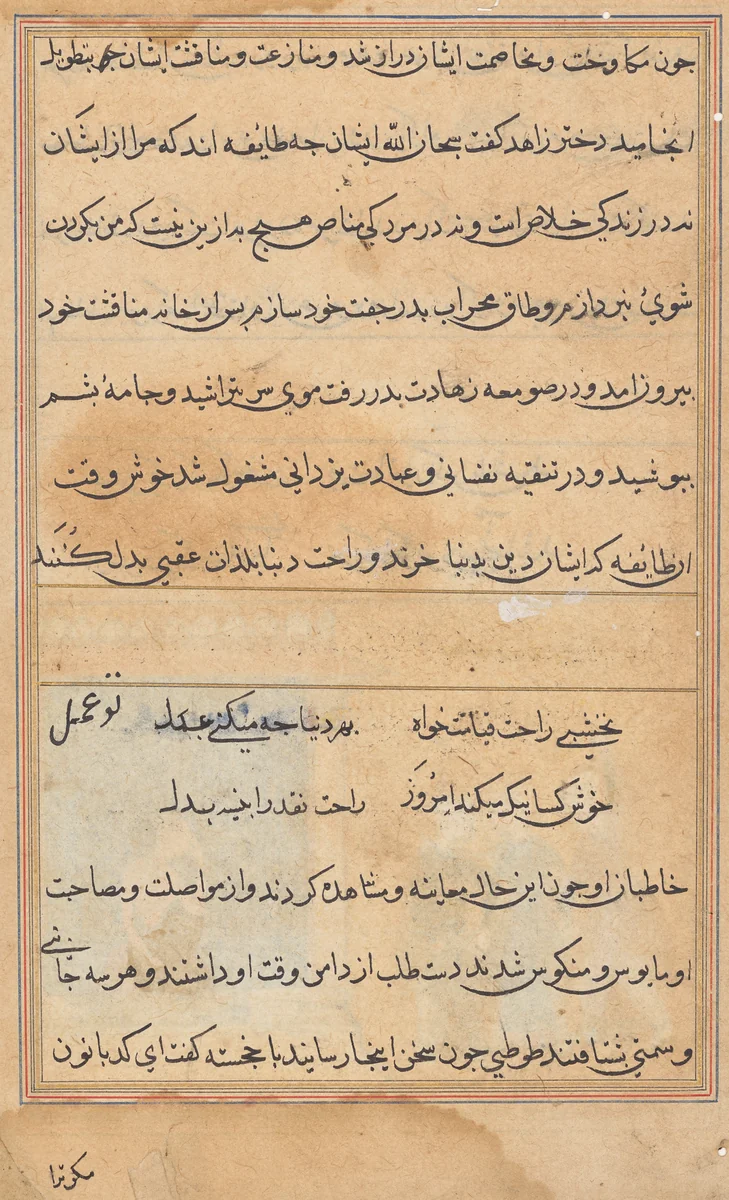 جون مکاوحت ومخاصمت ایشان دراز شد ومنازعت ومناقشت ایشان بتطویل
انجامید دختر زاهد کفت سبحان الله ایشان جه طایٔفه اند که مرا از ایشان
نه در زندکی خلاص است ونه در مردکی مناص هیج به ازین نیست که من بکردن
شویٔ نبردازم وطاق محراب بدر جفت خود سازم بس از خانه مناقشت خود
بیرون امد ودر صومعه زهادت بدر رفت موی سر بتراشید وجامهٔ بشم
ببوشید ودر تنقیه نفسانی وعبادت یزدانی مشغول شد خوش وقت
ان طایٔفه که ایشان دین بدنیا خرند وراحت دنیا بلذات عقبی بدل کُنَند
نخشبی راحت قیامت خواه بهر دنیا جه میکنی عمل
تو عمل
خوش کسانیک میکند امرُوَز راحت نقد را بنسیه بدل
خاطبان او جون این حال معاینه ومشاهده کردند واز مواصلت ومصاحبت
او مایوس ومنکوس شدند دست طلب از دامن وقت او داشتند وهر سه جانبی
وسمتی بشتافتند طوطی جون سخن اینجا رسایند با خجسته کفت ای کدبانون
مکر ترا